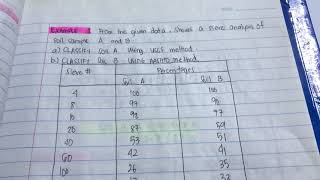 Example From the given data, shows a sieve analysis of
soil sample A and B.
a) CLASSIFY SOIL A USING USCS method
b) CLASSIFY SOIL B USING AASHTO method
Sieve # Percentages
Soil A Soil B
4 100 100
8 99 98
10 98 97
20 87 59
40 53 51
60 42 41
100 26 35